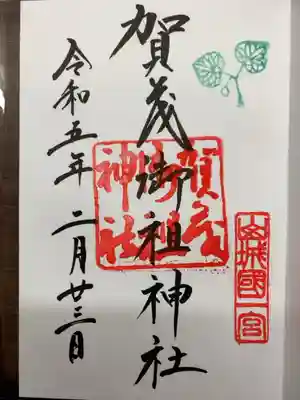 山城國一宮
賀茂御祖神社
賀茂御祖神社
令和五年二月廿三日